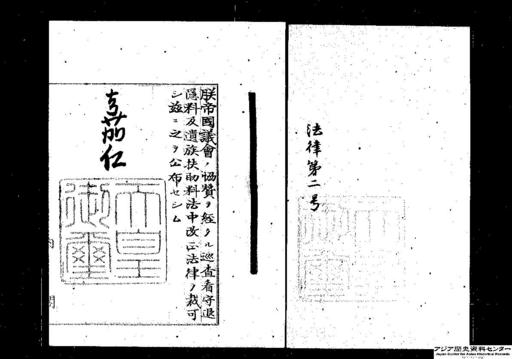 法律第二号
朕帝國議會ノ協賛ヲ経タル巡査看守退
隱料及遺族扶助料法中改正法律ヲ裁可
シ茲ニ之ヲ公布セシム
嘉仁
天皇
御璽
内 閣
アジア歴史資料センター
Japan Center for Asian Historical Records